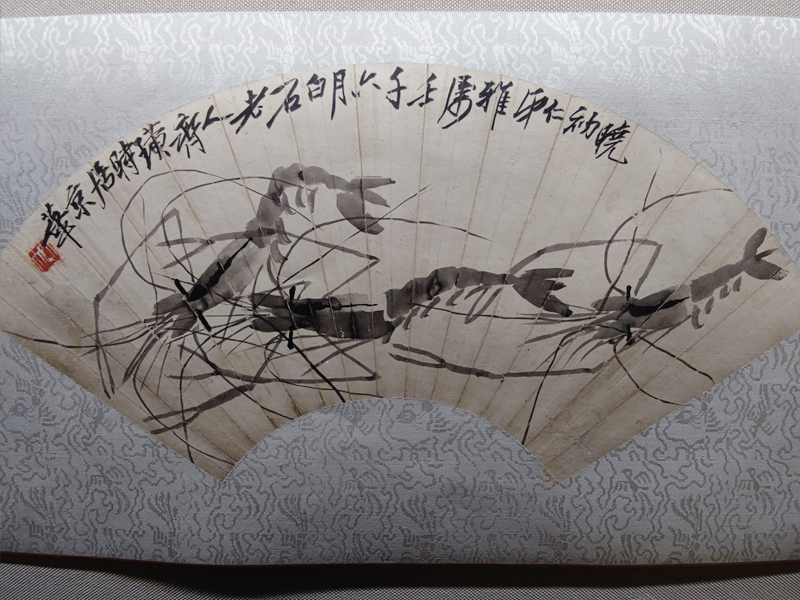 曉初仁弟雅屬壬午六月白石老人齊璜時居京華